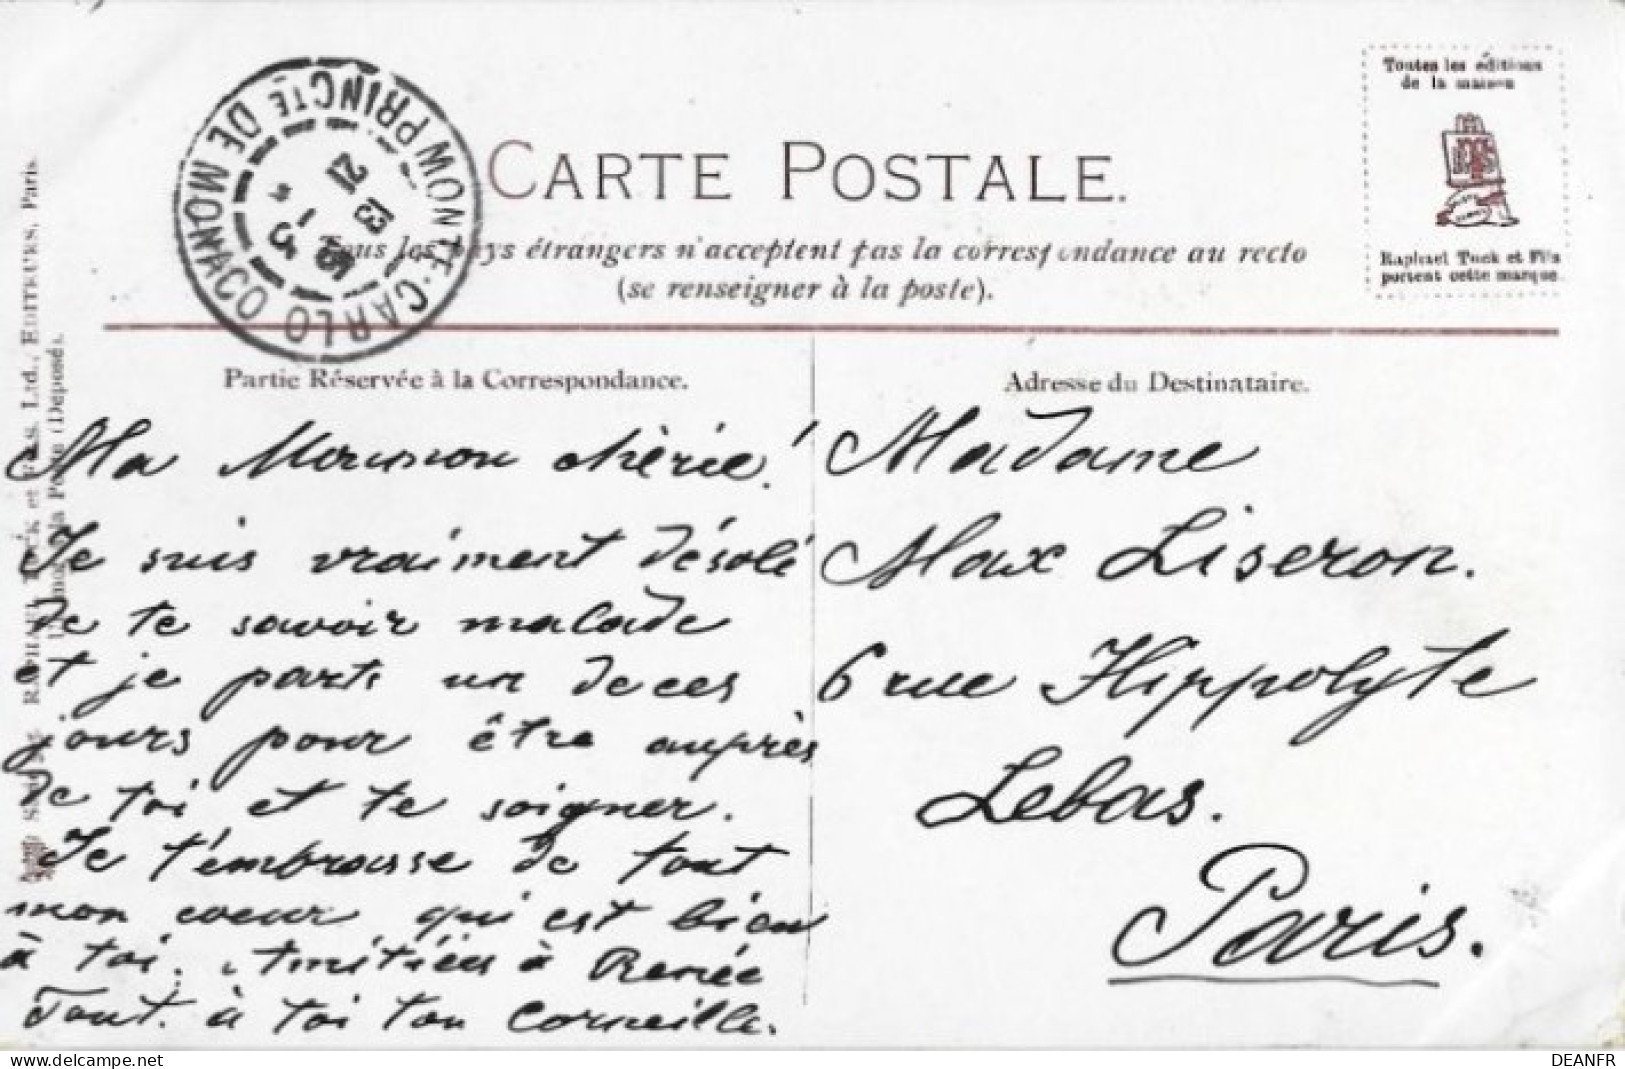 MONTE-CARLO
PRINCTE DE MONACO
21
13 - 5
Toutes les éditions
de la maison
Raphael Tuck et Fils
portent cette marque
CARTE POSTALE.
Tous les pays étrangers n'acceptent pas la correspondance au recto
(se renseigner à la poste).
Partie Réservée à la Correspondance.
Ma Mounon chérie!
Je suis vraiment désolé
de te savoir malade
et je parts un de ces
jours pour être auprès
de toi et te soigner.
Je t'embrasse de tout
mon coeur qui est bien
à toi. Amitiées à Renée
Tout à toi ton Corneille.
Adresse du Destinataire.
Madame
Max Liseron.
6 rue Hippolyte
Lebas.
Paris.
RAPHAEL TUCK et FILS. Ltd., EDITEURS, Paris.
la Poste (Déposé).
DEANFR